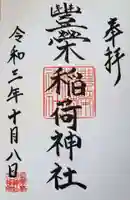 奉拝
豊榮稲荷神社
令和三年十月八日